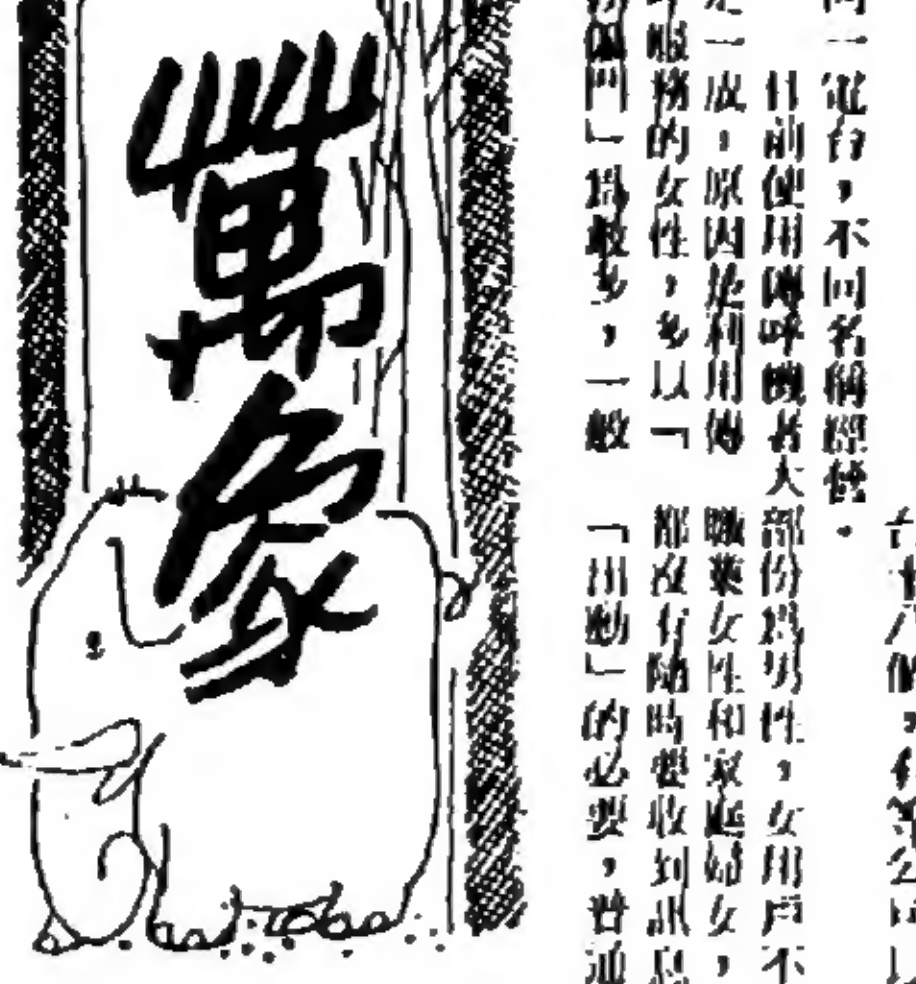 萬象
同一電台，不同名稱經營。
目前使用傳呼機者大部份為男性，女用戶不
足一成，原因是利用傳
呼服務的女性，多以「
偏門」為數多，一般
職業女性和家庭婦女，
都沒有隨時要收到訊息
「出動」的必要，普通